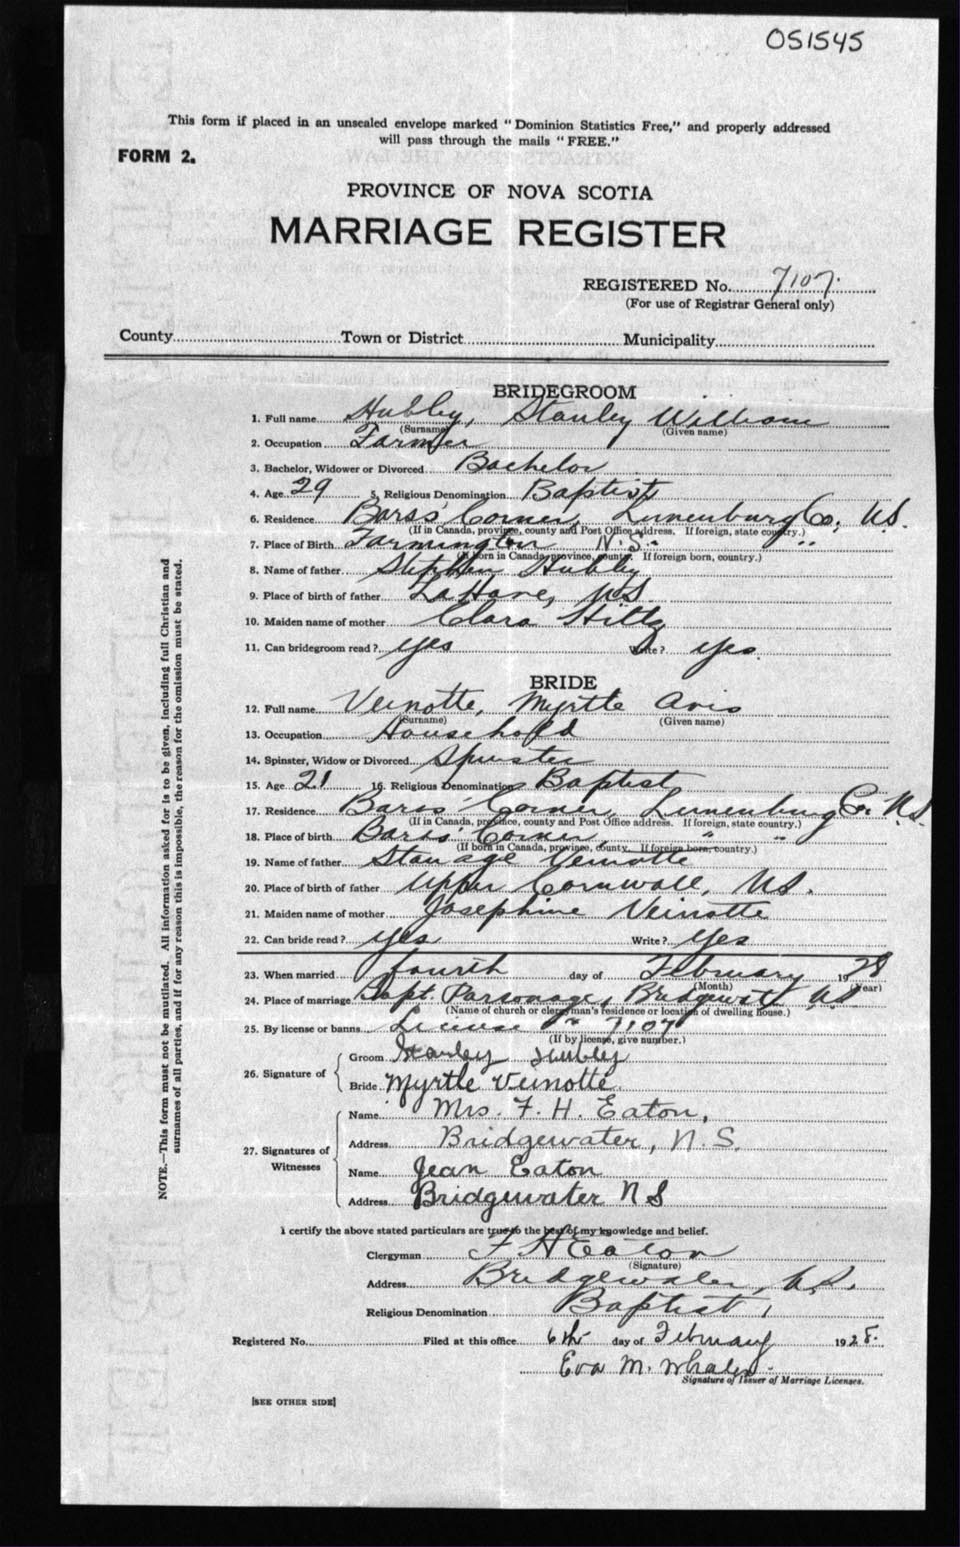 051545
This form if placed in an unsealed envelope marked "Dominion Statistics Free," and properly addressed
will pass through the mails "FREE."
FORM 2.
PROVINCE OF NOVA SCOTIA
MARRIAGE REGISTER
REGISTERED No. 7107.
(For use of Registrar General only)
County Town or District Municipality
BRIDEGROOM
1. Full name Hubley, Stanley William
(Surname) (Given name)
2. Occupation Farmer
3. Bachelor, Widower or Divorced Bachelor
4. Age 29 5. Religious Denomination Baptist
6. Residence Barss' Corner, Lunenburg Co., N.S.
(If in Canada, province, county and Post Office address. If foreign, state country.)
7. Place of Birth Farmington N.S. "
(If born in Canada, province, county. If foreign born, country.)
8. Name of father Stephen Hubley
9. Place of birth of father LaHave, N.S.
10. Maiden name of mother Clara Hiltz
11. Can bridegroom read? yes Write? yes.
BRIDE
12. Full name Veinotte, Myrtle Avis
(Surname) (Given name)
13. Occupation Household
14. Spinster, Widow or Divorced Spinster
15. Age 21 16. Religious Denomination Baptist
17. Residence Barss' Corner, Lunenburg Co. N.S.
(If in Canada, province, county and Post Office address. If foreign, state country.)
18. Place of birth Barss' Corner, " "
(If born in Canada, province, county. If foreign born, country.)
19. Name of father Veinotte
20. Place of birth of father Upper Cornwall, N.S.
21. Maiden name of mother Josephine Veinotte
22. Can bride read? yes Write? yes
23. When married fourth day of February 1928
(Month) (Year)
24. Place of marriage Bapt. Parsonage, Bridgewater, N.S.
(Name of church or clergyman's residence or location of dwelling house.)
25. By license or banns License 7107
(If by license, give number.)
26. Signature of
Groom Stanley Hubley
Bride Myrtle Veinotte
27. Signatures of Witnesses
Name Mrs. F. H. Eaton,
Address Bridgewater, N.S.
Name Jean Eaton
Address Bridgewater N S
I certify the above stated particulars are true to the best of my knowledge and belief.
Clergyman F H Eaton
(Signature)
Address Bridgewater, N.S.
Religious Denomination Baptist
Registered No. Filed at this office 6th day of February 1928.
Eva M. Whalen.
Signature of Issuer of Marriage Licenses.
[SEE OTHER SIDE]
NOTE.—This form must not be mutilated. All information asked for is to be given, including full Christian and
surnames of all parties, and if for any reason this is impossible, the reason for the omission must be stated.